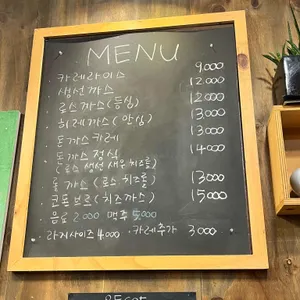 MENU
카레라이스 9.000
생선까스 12.000
로스까스(등심) 12000
히레까스(안심) 13000
돈까스 카레 13000
돈까스 정식 14000
(로스 생선 새우 치즈롤)
롤까스(로스 치즈롤) 13000
코돈부르(치즈까스) 15000
음료 2.000 맥주 5000
라지사이즈 4000 · 카레추가 3000